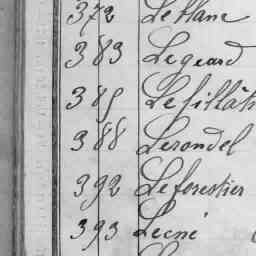 372 Leblanc
383 Legeard
385 Lefillât
388 Lerondel
392 Leforestier
393 Lecné